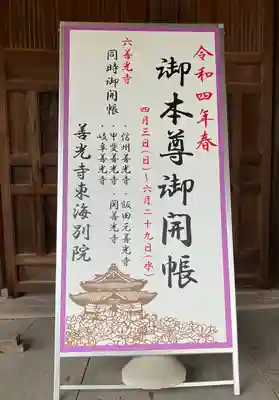 令和四年春
御本尊御開帳
四月三日(日)～六月二十九日(水)
六善光寺
同時御開帳
・信州善光寺・飯田元善光寺
・甲斐善光寺・関善光寺
・岐阜善光寺
善光寺東海別院